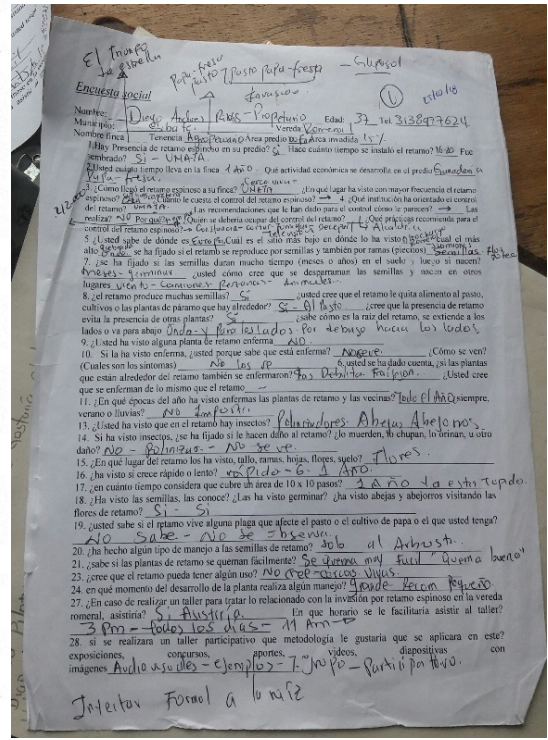 El Triunfo
la estrella
papa-fresa
pasto 7 pasto papa-fresa
- Gliposol
Invasivo
1
Encuesta social
Nombre: Diego Andres - Propetario Edad: 37 Tel. 3138977624
Municipio: Vereda Romeral
Nombre finca Tenencia Area predio Area invadida 15%
1.Hay Presencia de retamo espinoso en su predio? Si Hace cuánto tiempo se instalo el retamo? Fue
sembrado? Si - UMATA.
2.Usted cuánto tiempo lleva en la finca 1 Año. Qué actividad económica se desarrolla en el predio Ganaderia
Papa - fresa.
3. ¿Como llegó el retamo espinoso a su finca? UMATA ¿En qué lugar ha visto con mayor frecuencia el retamo
espinoso? ¿Cuánto le cuesta el control del retamo espinoso? 4. ¿Qué institución ha orientado el control
del retamo? UMATA. ¿Las recomendaciones que le han dado para el control cómo le parecen? Las
realiza? NO Porque ¿Quién se debería ocupar del control del retamo? ¿Qué prácticas recomienda para el
control del retamo espinoso? Alcaldia
5. ¿Usted sabe de dónde es Europeo ¿Cuál es el sitio más bajo en dónde lo ha visto cual el más
alto se ha fijado si el retamo se reproduce por semillas y también por ramas (piezas) Semillas -
7. ¿se ha fijado si las semillas duran mucho tiempo (meses o años) en el suelo y luego si nacen?
Meses - germinar ¿usted cómo cree que se desparraman las semillas y nacen en otros
lugares viento - Camiones Personas - Animales...
8. ¿el retamo produce muchas semillas? Si ¿usted cree que el retamo le quita alimento al pasto,
cultivos o las plantas de páramo que hay alrededor? Si - Al Pasto ¿cree que la presencia de retamo
evita la presencia de otras plantas? Si ¿sabe cómo es la raíz del retamo, se extiende a los
lados o va para abajo Onda - y para los lados - Por debajo hacia los lados
9. ¿Usted ha visto alguna planta de retamo enferma NO.
10. Si la ha visto enferma, ¿usted porque sabe que está enferma? No se ve. ¿Cómo se ven?
(Cuales son los síntomas) No los se 6. usted se ha dado cuenta, ¿si las plantas
que están alrededor del retamo también se enfermaron? Las Debilita Frailejon. ¿Usted cree
que se enferman de lo mismo que el retamo
11. ¿En qué época del año ha visto enfermas las plantas de retamo y las vecinas? Todo El Año ¿siempre,
verano o lluvias? NO Importa.
13. ¿Usted ha visto que en el retamo hay insectos? Polinizadores Abejas Abejonos.
14. Si ha visto insectos, ¿se ha fijado si le hacen daño al retamo? ¿lo muerden, lo chupan, lo orinan, u otro
daño? NO - Polinizas - No se ve.
15. ¿En qué lugar del retamo los ha visto, tallo, ramas, hojas, flores, suelo? Flores.
16. ¿ha visto si crece rápido o lento? rapido - 6 - 1 Año.
17. ¿en cuánto tiempo considera que cubre un área de 10 x 10 pasos? 1 Año ya esta Tupido.
18. ¿Ha visto las semillas, las conoce? ¿Las ha visto germinar? ¿ha visto abejas y abejorros visitando las
flores de retamo? Si - Si
19. ¿usted sabe si el retamo vive alguna plaga que afecte el pasto o el cultivo de papa o el que usted tenga?
No Sabe - No se observa.
20. ¿ha hecho algún tipo de manejo a las semillas de retamo? solo al Arbusto.
21. ¿sabe si las plantas de retamo se queman fácilmente? Se quema muy Facil "quema bueno"
23. ¿cree que el retamo pueda tener algún uso? NO cree - cercas vivas.
24. en qué momento del desarrollo de la planta realiza algún manejo? Grande Pequeño.
27. ¿En caso de realizar un taller para tratar lo relacionado con la invasión por retamo espinoso en la vereda
romeral, asistiría? Si Asistiria. En que horario se le facilitaría asistir al taller?
3 Pm - todos los dias - 11 Am
28. si se realizara un taller participativo que metodología le gustaría que se aplicara en este?
exposiciones, concursos, aportes, videos, diapositivas con
imágenes Audiovisuales - ejemplos - Grupo - Participativo.
Inyectar Formol a la raiz